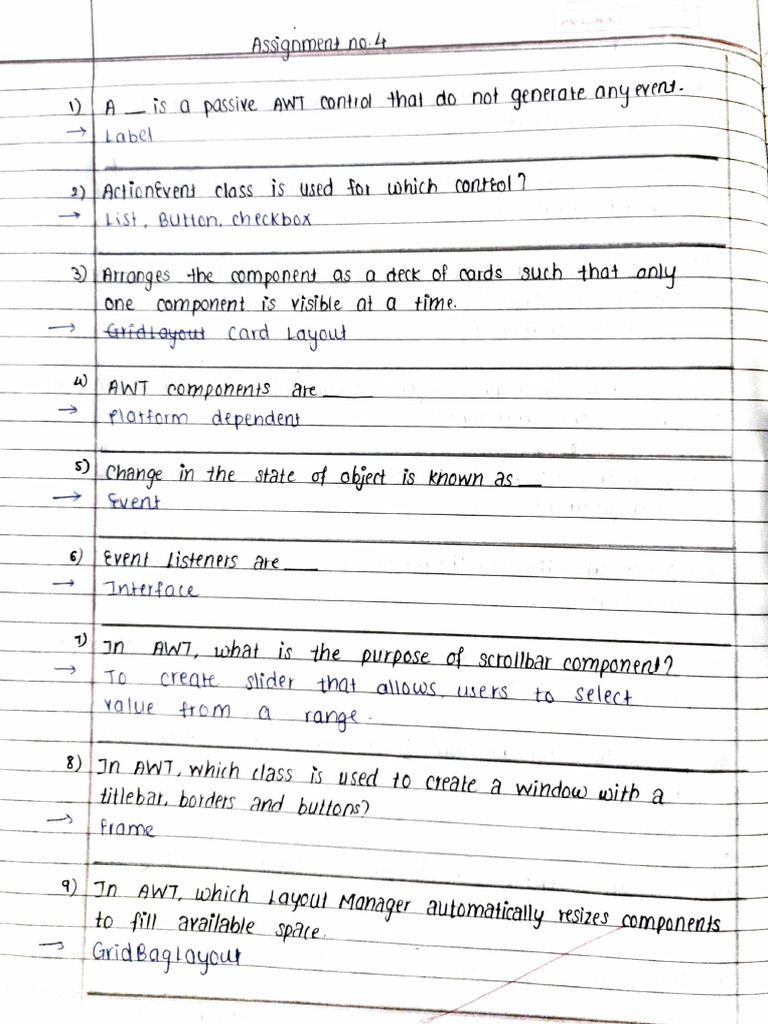 PAGE NO.
Assignment no.4
1) A __ is a passive AWT control that do not generate any event.
→ Label
2) ActionEvent class is used for which control?
→ List, Button, checkbox
3) Arranges the component as a deck of cards such that only
one component is visible at a time.
→ GridLayout Card Layout
4) AWT components are ____
→ Platform dependent
5) Change in the state of object is known as __
→ Event
6) Event Listeners are ___
→ Interface
7) In AWT, what is the purpose of scrollbar component?
→ To create slider that allows users to select
value from a range.
8) In AWT, which class is used to create a window with a
titlebar, borders and buttons?
→ Frame
9) In AWT, which Layout Manager automatically resizes components
to fill available space.
→ GridBagLayout